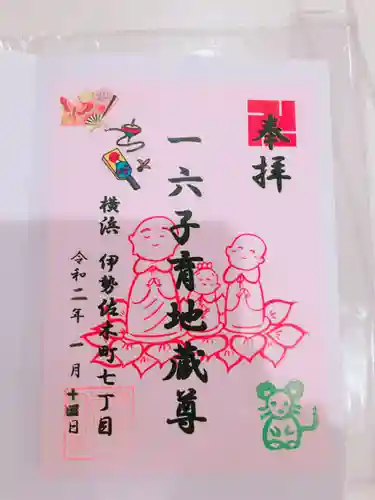 奉拝
一六子育地蔵尊
横浜 伊勢佐木町七丁目
令和二年 一月十四日